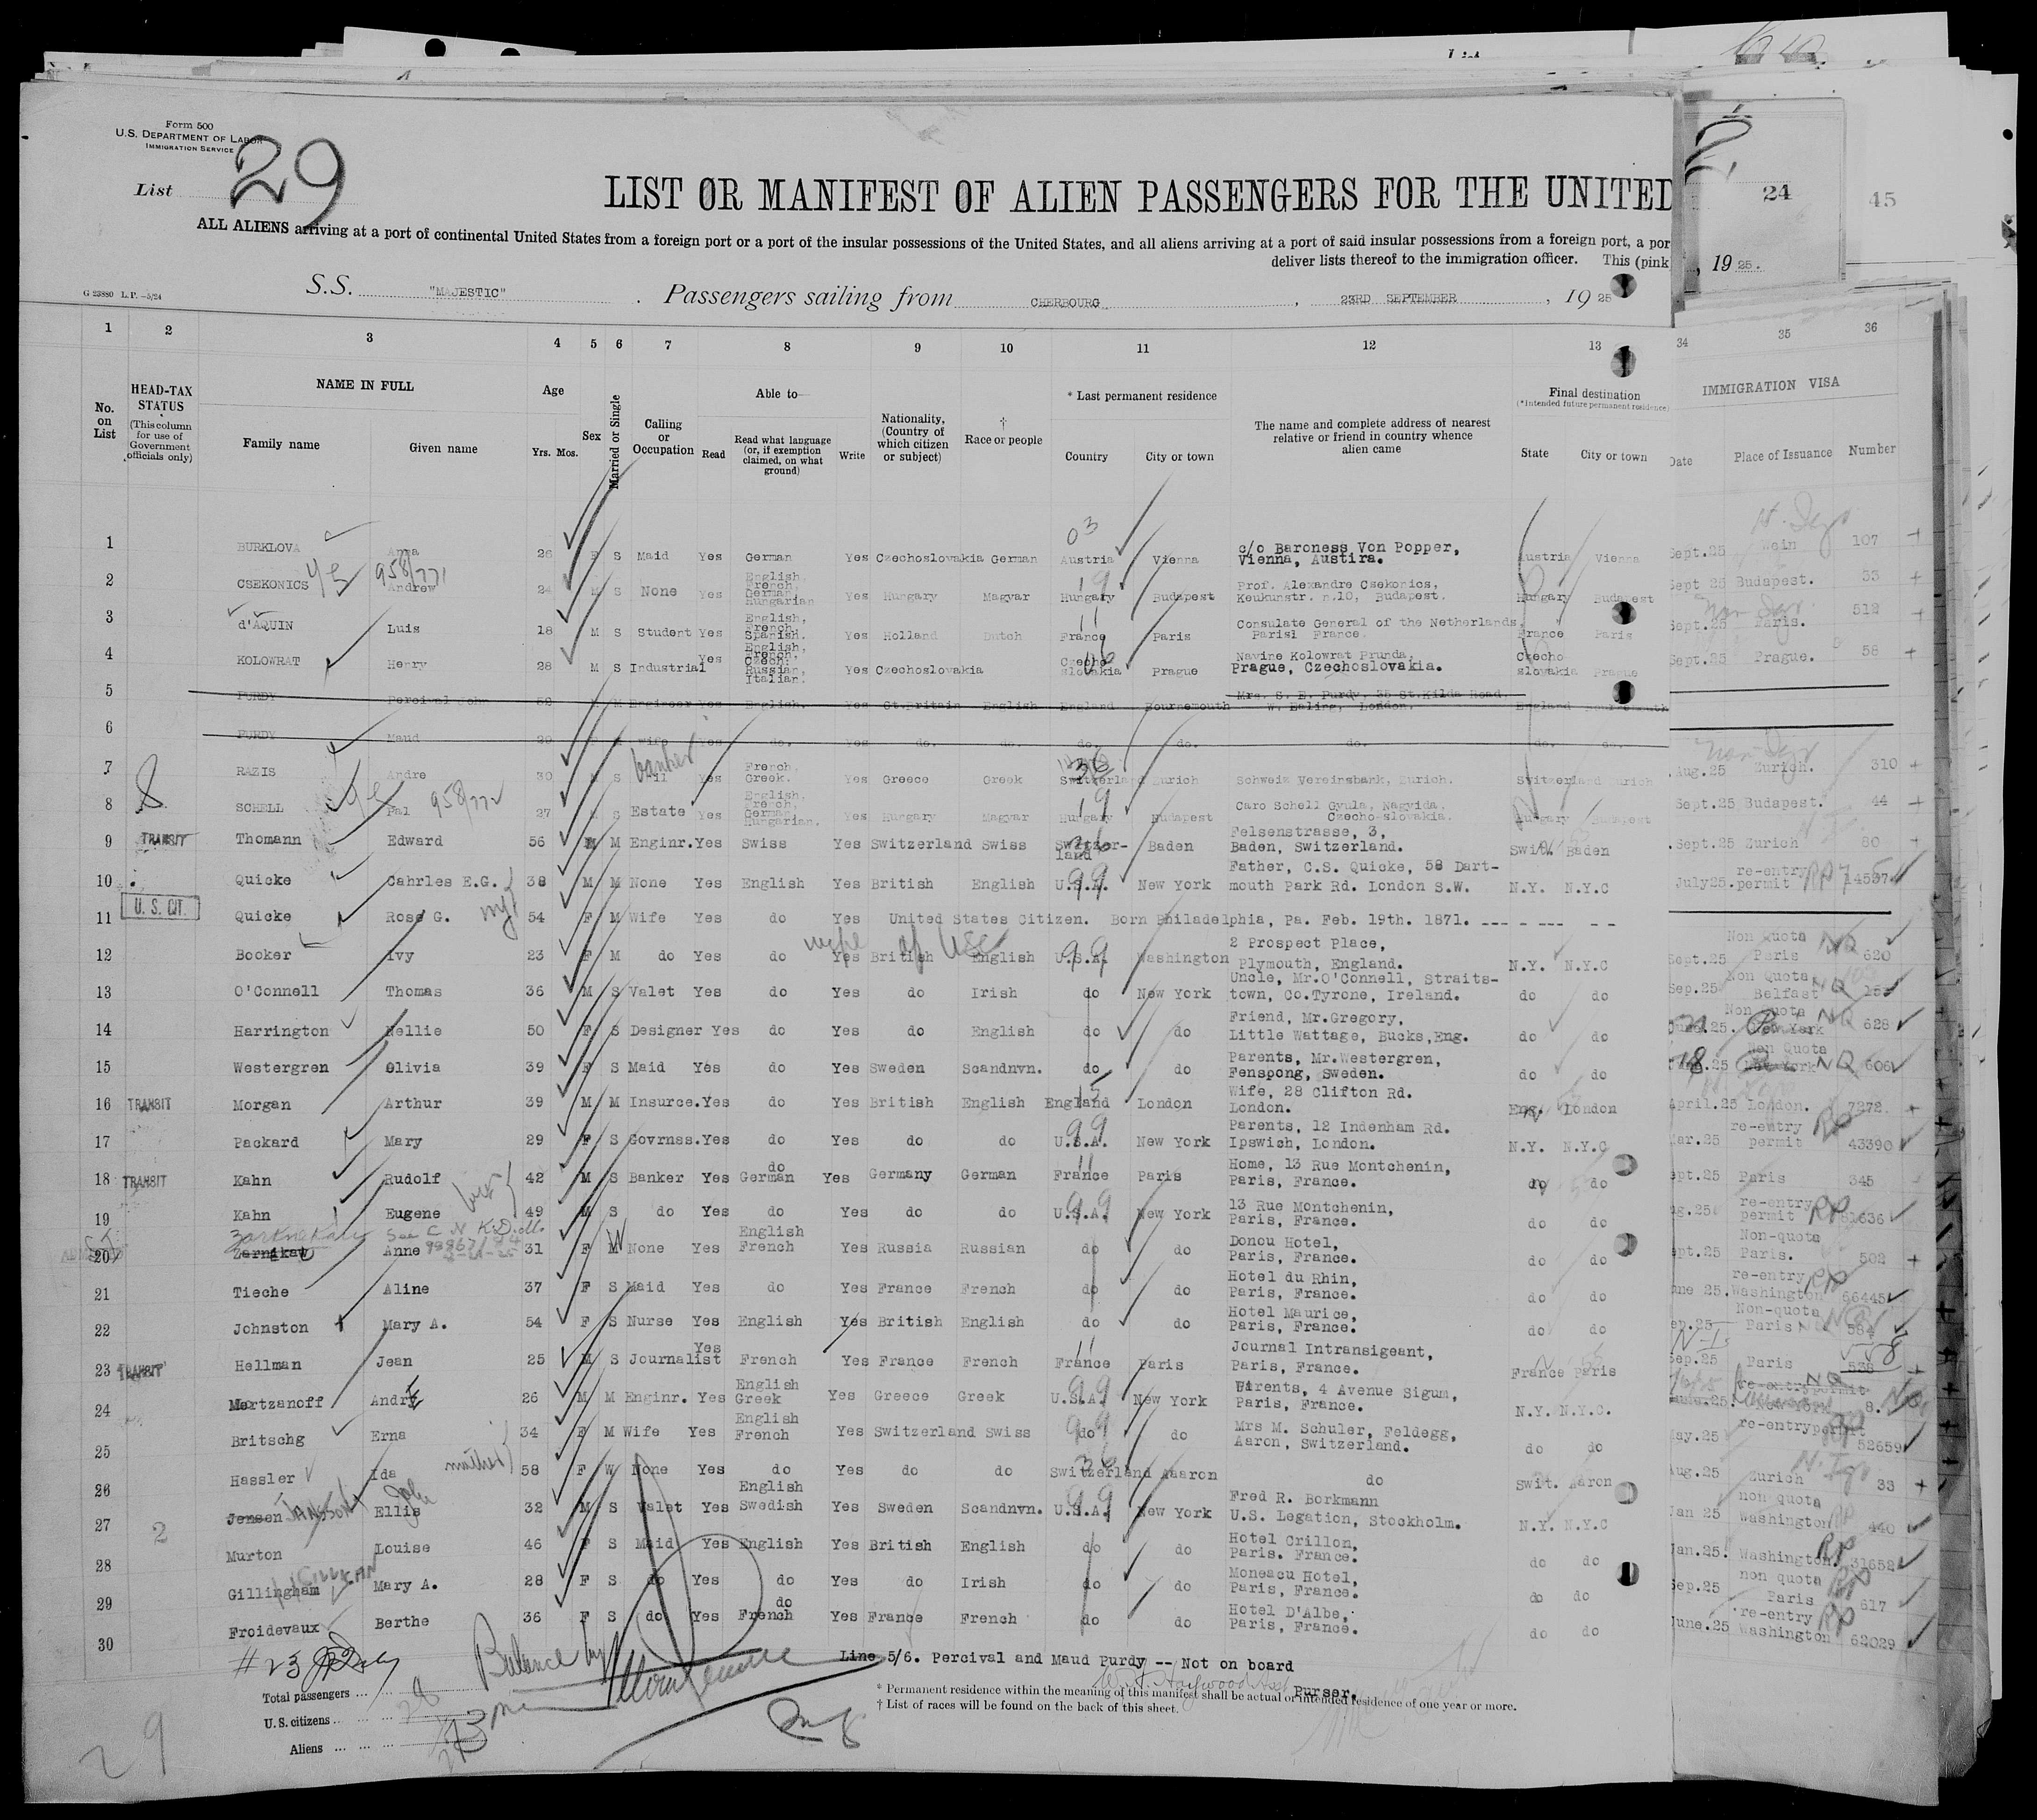 Form 500
U.S. DEPARTMENT OF LABOR
IMMIGRATION SERVICE
List 29
24
45
LIST OR MANIFEST OF ALIEN PASSENGERS FOR THE UNITED
ALL ALIENS arriving at a port of continental United States from a foreign port or a port of the insular possessions of the United States, and all aliens arriving at a port of said insular possessions from a foreign port, a por
deliver lists thereof to the immigration officer. This (pink
, 19 25.
G 23880 L.P.—5/24
S.S. "MAJESTIC" . Passengers sailing from CHERBOURG , 23RD SEPTEMBER , 19 25
1 2 3 4 5 6 7 8 9 10 11 12 13 34 35 36
No. on List
HEAD-TAX STATUS (This column for use of Government officials only)
NAME IN FULL
Family name Given name
Age
Yrs. Mos.
Sex
Married or Single
Calling or Occupation
Able to—
Read
Read what language (or, if exemption claimed, on what ground)
Write
Nationality, (Country of which citizen or subject)
† Race or people
* Last permanent residence
Country City or town
The name and complete address of nearest relative or friend in country whence alien came
Final destination
(*Intended future permanent residence)
State City or town
IMMIGRATION VISA
Date Place of Issuance Number
1 BURKLOVA Anna 26 F S Maid Yes German Yes Czechoslovakia German Austria Vienna c/o Baroness Von Popper, Vienna, Austira. Austria Vienna Sept.25 Wein 107
2 CSEKONICS Andrew 958/771 24 M S None Yes English, French, German, Hungarian Yes Hungary Magyar Hungary Budapest Prof. Alexandre Csekonics, Keukunstr. n.10, Budapest. Hungary Budapest Sept 25 Budapest. 33
3 d'AQUIN Luis 18 M S Student Yes English, French, Spanish. Yes Holland Dutch France Paris Consulate General of the Netherlands, Parisl France. France Paris Sept.25 Paris. 512
4 KOLOWRAT Henry 28 M S Industrial Yes English, French, Czech, Russian, Italian. Yes Czechoslovakia Czecho slovakia Prague Navine Kolowrat Prunda, Prague, Czechoslovakia. Czecho slovakia Prague Sept.25 Prague. 58
5 PURDY Percival John 50 M Engineer Yes English. Yes Gt.Britain English England Bournemouth Mrs. S. E. Purdy, 35 St.Kilda Road. W. Ealing, London. England
6 PURDY Maud 29 F M wife Yes do. Yes do. do. do. do. do. do. do.
7 RAZIS Andre 30 M S banker Yes French, Greek. Yes Greece Greek Switzerland Zurich Schweiz Vereinsbank, Zurich. Switzerland Zurich Aug.25 Zurich. 310
8 SCHELL Pal 958/772 27 M S Estate Yes English, French, German, Hungarian. Yes Hungary Magyar Hungary Budapest Caro Schell Gyula, Nagyida, Czecho-slovakia. Hungary Budapest Sept.25 Budapest. 44
9 TRANSIT Thomann Edward 56 M M Enginr. Yes Swiss Yes Switzerland Swiss Switzer- land Baden Felsenstrasse, 3, Baden, Switzerland. Swit. Baden Sept.25 Zurich 80
10 Quicke Cahrles E.G. 38 M M None Yes English Yes British English U.S.A. New York Father, C.S. Quicke, 58 Dart- mouth Park Rd. London S.W. N.Y. N.Y.C July25. re-entry permit RP 14597
11 U. S. CIT. Quicke Rose G. 54 F M Wife Yes do Yes United States Citizen. Born Philadelphia, Pa. Feb. 19th. 1871. --- - --- - -
12 Booker Ivy 23 F M do Yes do Yes British wife of USC English U.S.A. Washington 2 Prospect Place, Plymouth, England. N.Y. N.Y.C Sept.25 Non Quota Paris NQ 620
13 O'Connell Thomas 36 M S Valet Yes do Yes do Irish do New York Uncle, Mr.O'Connell, Straits- town, Co.Tyrone, Ireland. do do Sep.25 Non Quota Belfast NQ
14 Harrington Nellie 50 F S Designer Yes do Yes do English do do Friend, Mr.Gregory, Little Wattage, Bucks,Eng. do do June.25. Non quota New York NQ 628
15 Westergren Olivia 39 F S Maid Yes do Yes Sweden Scandnvn. do do Parents, Mr.Westergren, Fenspong, Sweden. do do .25 Non Quota New York NQ 606
16 TRANSIT Morgan Arthur 39 M M Insurce. Yes do Yes British English England London Wife, 28 Clifton Rd. London. Eng. London April.25 London. 7272
17 Packard Mary 29 F S Govrnss. Yes do Yes do do U.S.A. New York Parents, 12 Indenham Rd. Ipswich, London. N.Y. N.Y.C Mar.25 re-entry permit RP 43390
18 TRANSIT Kahn Rudolf 42 M S Banker Yes do German Yes Germany German France Paris Home, 13 Rue Montchenin, Paris, France. do do Sept.25 Paris 345
19 Kahn Eugene 49 M S do Yes do Yes do do U.S.A. New York 13 Rue Montchenin, Paris, France. do do Aug.25 re-entry permit RP 51636
20 Zarnikau Anne 31 F W None Yes English French Yes Russia Russian do do Donou Hotel, Paris, France. do do Sept.25 Non-quota Paris. 502
21 Tieche Aline 37 F S Maid Yes do Yes France French do do Hotel du Rhin, Paris, France. do do June 25. re-entry Washington RP 66445
22 Johnston Mary A. 54 F S Nurse Yes English Yes British English do do Hotel Maurice, Paris, France. do do Sep.25 Non-quota Paris NQ 584
23 TRANSIT Hellman Jean 25 M S Journalist Yes French Yes France French France Paris Journal Intransigeant, Paris, France. France Paris Sep.25 Paris 538
24 Mertzanoff André 26 M M Enginr. Yes English Greek Yes Greece Greek U.S.A. New York Parents, 4 Avenue Sigum, Paris, France. N.Y. N.Y.C. June.25. re-entry permit New York 8.
25 Britschg Erna 34 F M Wife Yes English French Yes Switzerland Swiss do do Mrs M. Schuler, Feldegg, Aaron, Switzerland. do do May.25 re-entry permit 52659
26 Hassler Ida mother 58 F W None Yes do Yes do do Switzerland Aaaron do Swit. Aaron Aug.25 Zurich 33
27 Jensen JANSSON Ellis John 32 M S Valet Yes English Swedish Yes Sweden Scandnvn. U.S.A. New York Fred R. Borkmann U.S. Legation, Stockholm. N.Y. N.Y.C Jan 25 non quota Washington RP 440
28 Murton Louise 46 F S Maid Yes English Yes British English do do Hotel Crillon, Paris. France. do do Jan.25. Washington. RP 31652
29 Gillingham Mary A. 28 F S do Yes do Yes do Irish do do Moneacu Hotel, Paris, France. do do Sep.25 non quota Paris 617
30 Froidevaux Berthe 36 F S do Yes do French Yes France French do do Hotel D'Albe, Paris, France. do do June.25 re-entry Washington RP 62029
Line 5/6. Percival and Maud Purdy -- Not on board
Balance by
Purser.
Total passengers ... ...
U.S. citizens ... ... ...
Aliens ... ... ...
* Permanent residence within the meaning of this manifest shall be actual or intended residence of one year or more.
† List of races will be found on the back of this sheet.
29